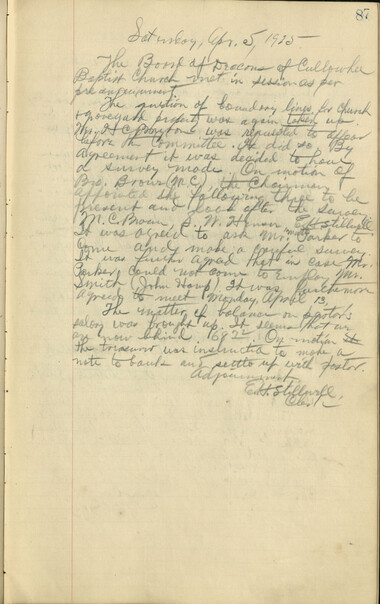 87
Saturday, Apr. 5, 1925
The Board of Deacons of Cullowhee
Baptist Church met in session as per
pre announcement.
The question of boundary lines for Church
graveyard property was again taken up.
Mr. H C was requested to appear
before the Committee. He did so. By
Agreement it was decided to have
a survey made. On motion of
Bro. Brown (M.C.) the Chairman
appointed the following three to be
present and look after the survey
M. C. Brown, E. W. Ed. Stillwell
It was agreed to ask Mr. Parker to
come and make a survey.
It was further agreed that in case Mr.
Parker could not come to Employ Mr.
Smith (John ). It was furthermore
Agreed to meet Monday, April 13,
The matter of balance on pastor's
salary was brought up. It seems that we
are now behind. On motion
the treasurer was instructed to make a
note to bank and settle up with Pastor.
Adjournment.
Ed. Stillwell,
Clerk